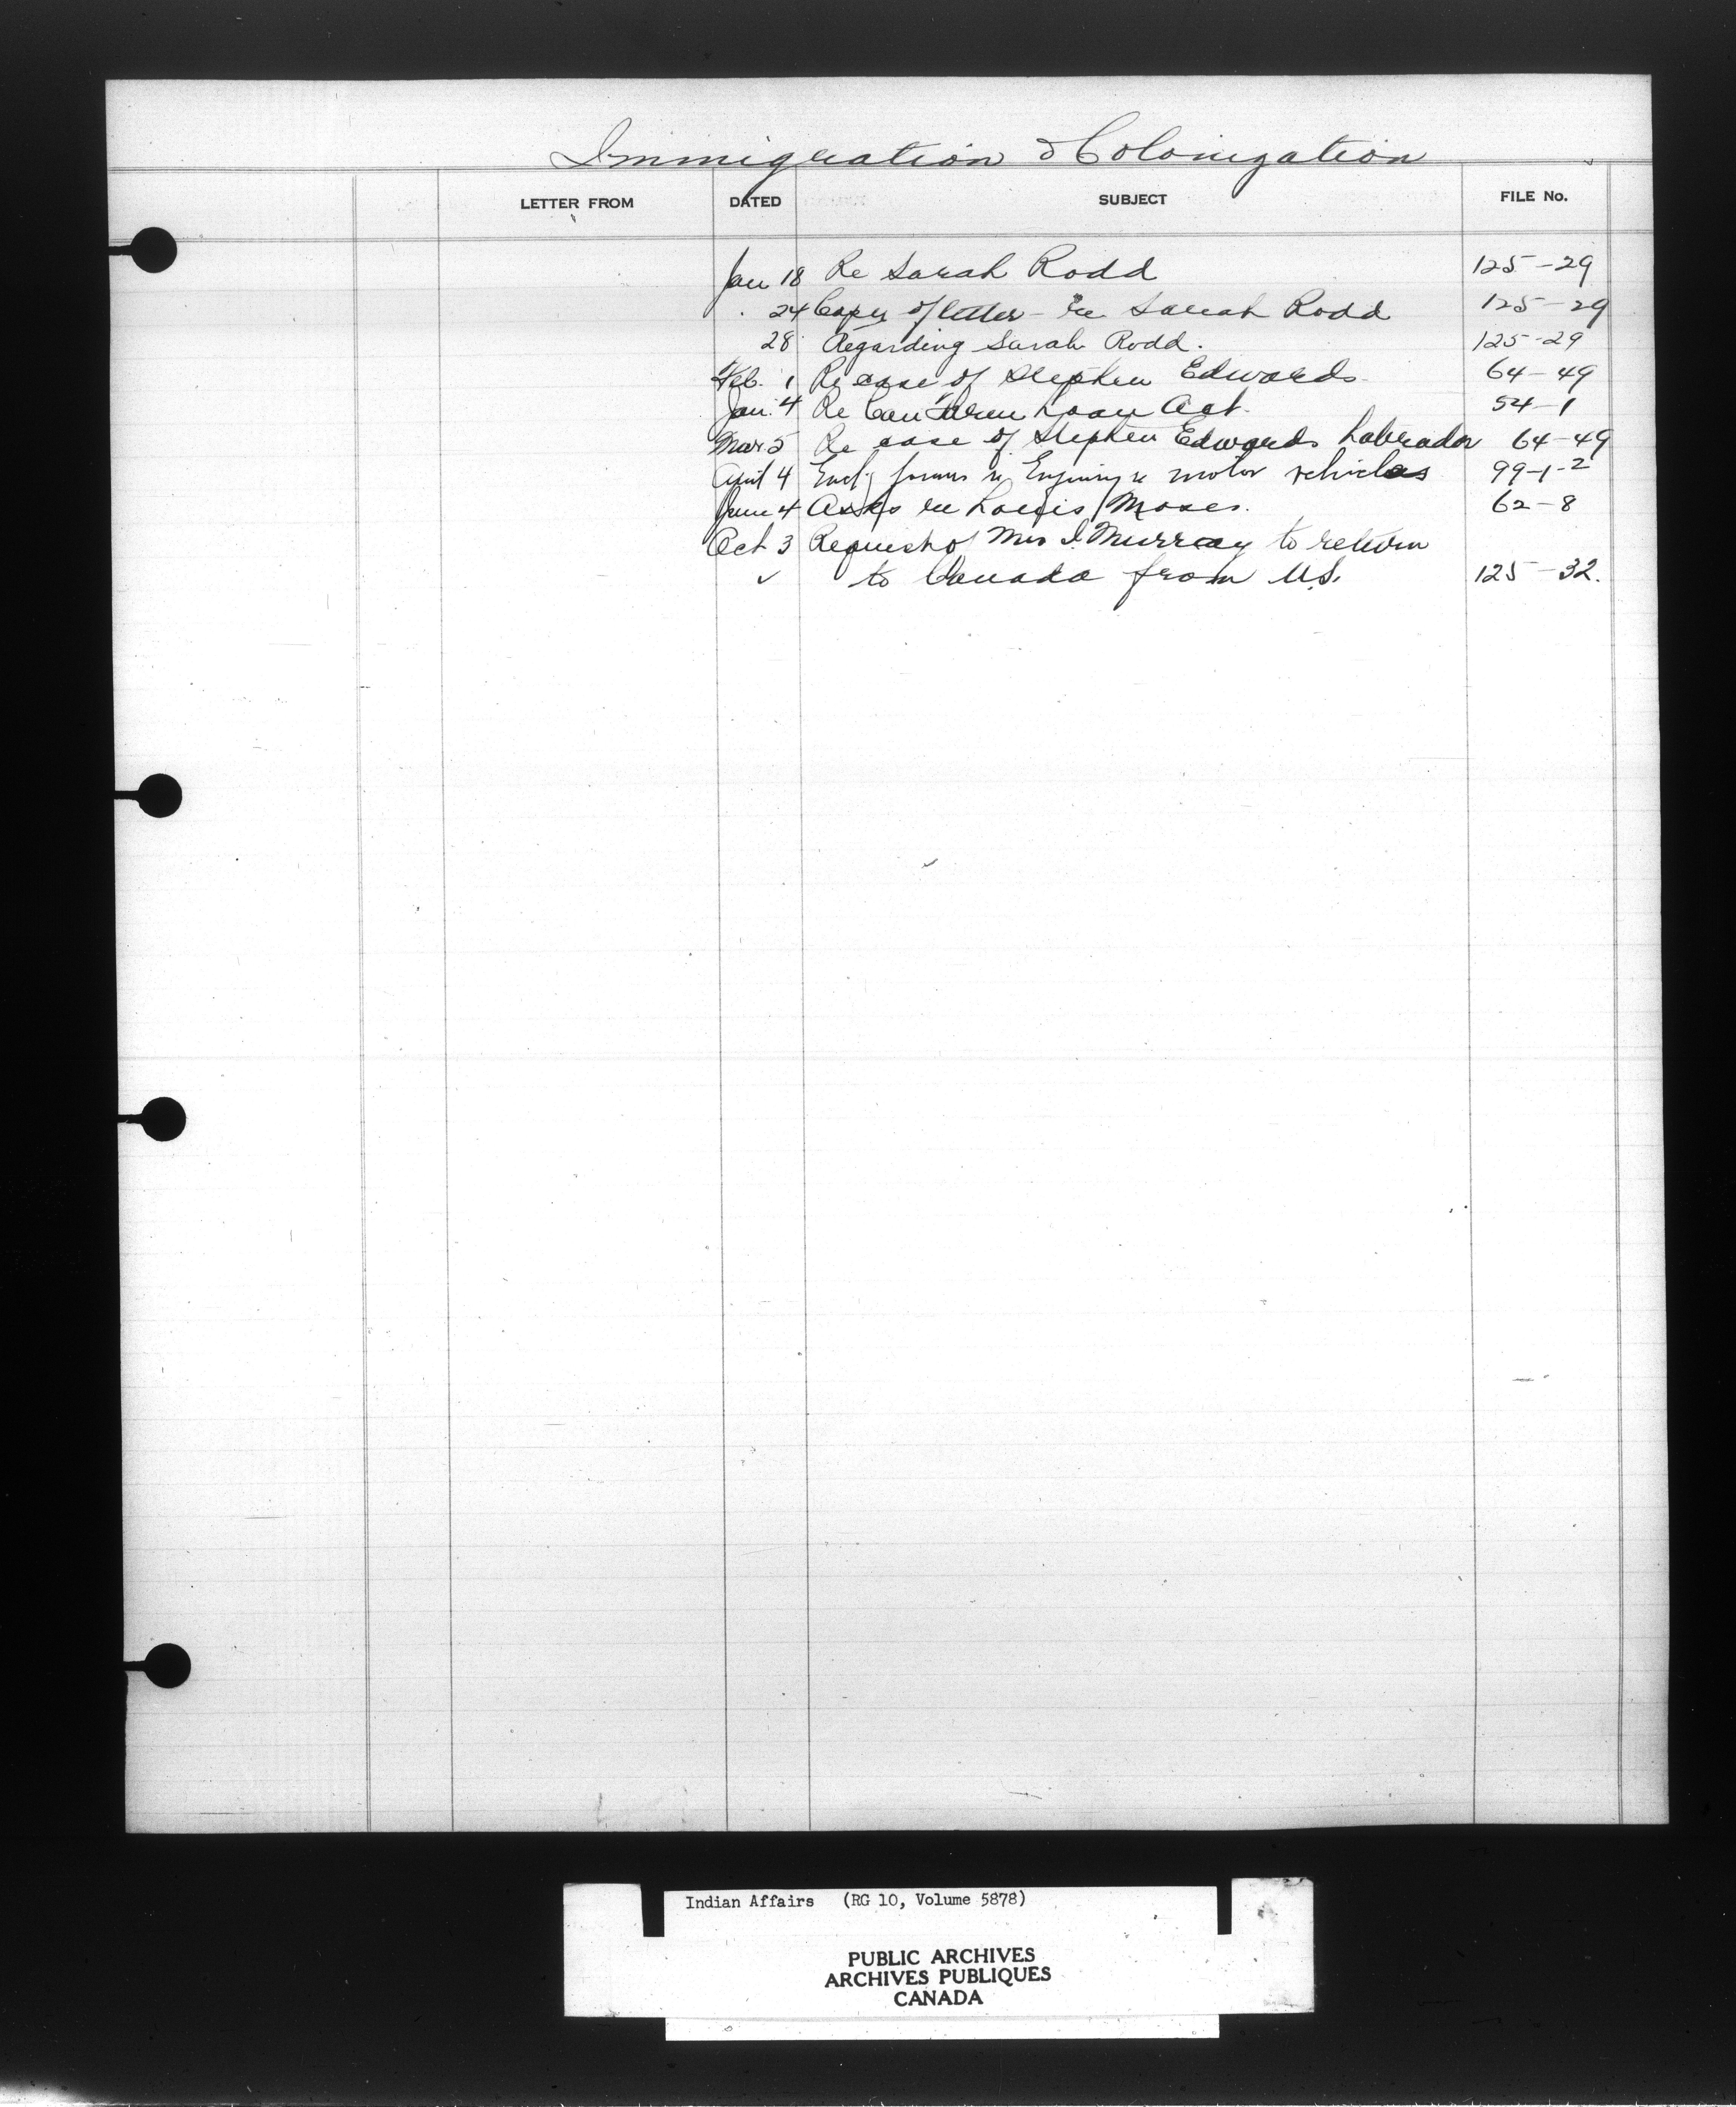 Immigration & Colonization
LETTER FROM DATED SUBJECT FILE No.
Jan 18 Re Sarah Rodd 125-29
24 Copy of letter - re Sarah Rodd 125-29
28 Regarding Sarah Rodd. 125-29
Feb. 1 Re case of Stephen Edwards 64-49
Jan. 4 Re Can Farm Loan Act. 54-1
Mar 5 Re case of Stephen Edwards Labrador 64-49
April 4 Encl'g forms re Enquiry re motor vehicles 99-1-2
June 4 Asks re Louis Moses. 62-8
Oct 3 Request of Mrs I. Murray to return
✓ to Canada from U.S. 125-32.
Indian Affairs (RG 10, Volume 5878)
PUBLIC ARCHIVES
ARCHIVES PUBLIQUES
CANADA